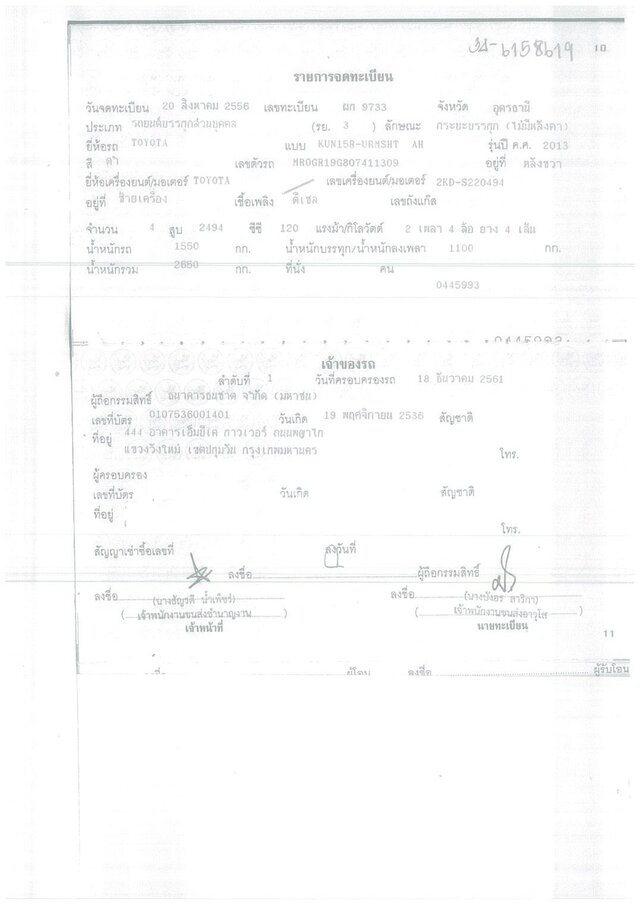 10
รายการจดทะเบียน
วันจดทะเบียน 20 สิงหาคม 2556 เลขทะเบียน ผก 9733 จังหวัด อุดรธานี
ประเภท รถยนต์บรรทุกส่วนบุคคล (รย. 3 ) ลักษณะ กระบะบรรทุก (ไม่มีหลังคา)
ยี่ห้อรถ TOYOTA แบบ KUN15R-URMSHT AH รุ่นปี ค.ศ. 2013
สี ดำ เลขตัวรถ MR0GR19G807411309 อยู่ที่ หลังขวา
ยี่ห้อเครื่องยนต์/มอเตอร์ TOYOTA เลขเครื่องยนต์/มอเตอร์ 2KD-S220494
อยู่ที่ ซ้ายเครื่อง เชื้อเพลิง ดีเซล เลขถังแก๊ส
จำนวน 4 สูบ 2494 ซีซี 120 แรงม้า/กิโลวัตต์ 2 เพลา 4 ล้อ ยาง 4 เส้น
น้ำหนักรถ 1550 กก. น้ำหนักบรรทุก/น้ำหนักลงเพลา 1100 กก.
น้ำหนักรวม 2650 กก. ที่นั่ง คน
0445993
เจ้าของรถ
ลำดับที่ 1 วันที่ครอบครองรถ 18 ธันวาคม 2561
ผู้ถือกรรมสิทธิ์ ธนาคารธนชาต จำกัด (มหาชน)
เลขที่บัตร 0107536001401 วันเกิด 19 พฤศจิกายน 2536 สัญชาติ
ที่อยู่ 444 อาคารเอ็มบีเค ทาวเวอร์ ถนนพญาไท
แขวงวังใหม่ เขตปทุมวัน กรุงเทพมหานคร โทร.
ผู้ครอบครอง
เลขที่บัตร วันเกิด สัญชาติ
ที่อยู่
โทร.
สัญญาเช่าซื้อเลขที่ ลงวันที่
ลงชื่อ ผู้ถือกรรมสิทธิ์
ลงชื่อ ลงชื่อ
(เจ้าพนักงานขนส่งชำนาญงาน) (เจ้าพนักงานขนส่งอาวุโส)
เจ้าหน้าที่ นายทะเบียน
11
ผู้โอน ลงชื่อ ผู้รับโอน